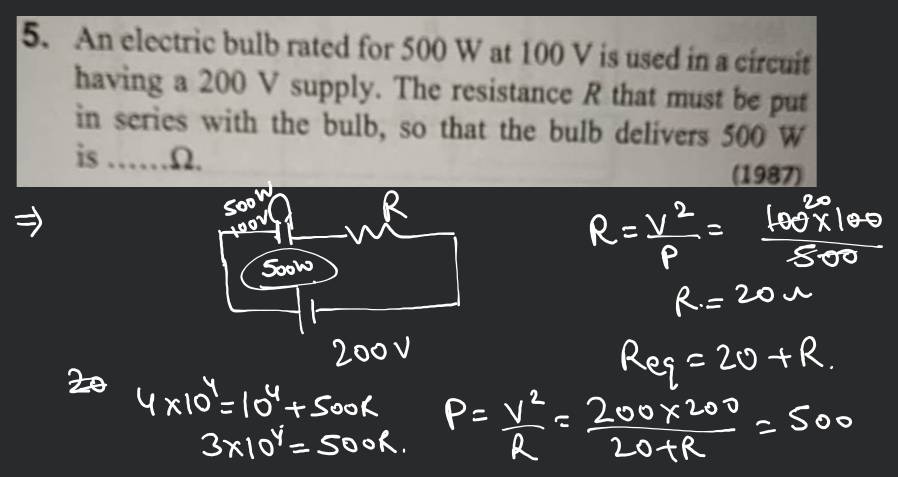 5. An electric bulb rated for 500 W at 100 V is used in a circuit
having a 200 V supply. The resistance R that must be put
in series with the bulb, so that the bulb delivers 500 W
is ......Ω.
(1987)
⇒
500W
100V
R
500W
200V
R = V²/P = 100×100/500
20
R = 20 Ω
Req = 20 + R.
20
4×10⁴ = 10⁴ + 500R
3×10⁴ = 500R.
P = V²/R = 200×200/20+R = 500